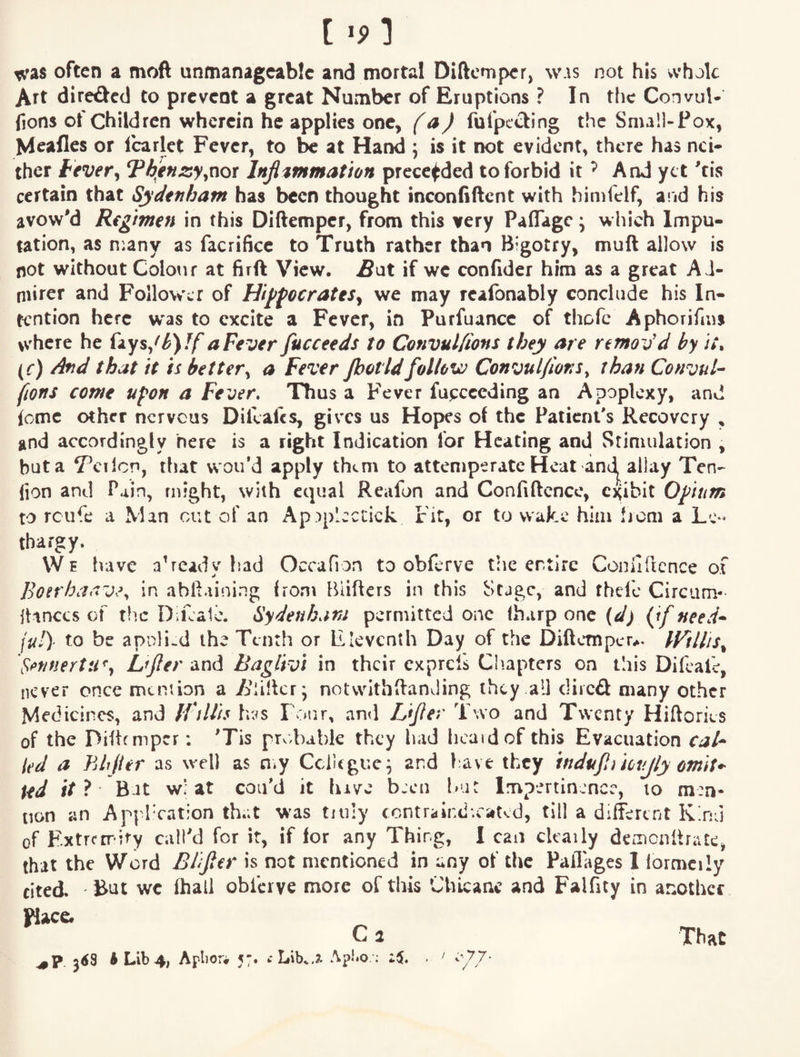 [ 19 ]
was often a moſt unmanageable and mortal Diſtemper, was not his whole
Art directed to prevent a great Number of Eruptions ? In the Convul-
ſions of Children wherein he applies one, (a) ſuſpecting the Small-Pox,
Meaſles or ſcarlet Fever, to be at Hand ; is it not evident, there has nei-
ther Fever, Phrenzy, nor Inflammation preceeded to forbid it ? And yet 'tis
certain that Sydenham has been thought inconſiſtent with himſelf, and his
avow'd Regimen in this Diſtemper, from this very Paſſage ; which Impu-
tation, as many as ſacrifice to Truth rather than Bigotry, muſt allow is
not without Colour at firſt View. But if we conſider him as a great Ad-
mirer and Follower of Hippocrates, we may reaſonably conclude his In-
tention here was to excite a Fever, in Purſuance of thoſe Aphoriſms
where he ſays, (b) If a Fever ſucceeds to Convulſions they are remov'd by it.
(c) And that it is better, a Fever ſhould follow Convulſions, than Convul-
ſions come upon a Fever. Thus a Fever ſupceeding an Apoplexy, and
ſome other nervous Diſeaſes, gives us Hopes of the Patient's Recovery ,
and accordingly here is a right Indication for Heating and Stimulation ,
but a Perſon, that wou'd apply them to attemperate Heat and allay Ten-
ſion and Pain, might, with equal Reaſon and Conſiſtence, exibit Opium
to rouſe a Man out of an Apoplectick Fit, or to wake him from a Le-
thargy.
WE have already had Occaſion to obſerve the entire Conſiſtence of
Boerhaave, in abſtaining from Bliſters in this Stage, and theſe Circum-
ſtances of the Diſeaſe. Sydenham permitted one ſharp one (d) (if need-
ful) to be applied the Tenth or Eleventh Day of the Diſtemper. Willis,
Sennertus, Liſter and Baglivi in their expreſs Chapters on this Diſeaſe,
never once mention a Bliſter ; notwithſtanding they all direct many other
Medicines, and Willis has Four, and Liſter Two and Twenty Hiſtories
of the Diſtemper : 'Tis probable they had heard of this Evacuation cal-
led a Bliſter as well as my Collegue ; and have they induſtriouſly omit-
ted it ? But what cou'd it have been but Impertinence, to men-
tion an Application that was truly contraindicated, till a different Kind
of Extremity call'd for it, if for any Thing, I can clearly demonſtrate,
that the Word Bliſter is not mentioned in any of the Paſſages I formerly
cited. But we ſhall obſerve more of this Chicane and Falſity in another
Place.
C 2 That
P. 368 b Lib 4, Aphor. 57. c Lib. 2 Apho. 26.